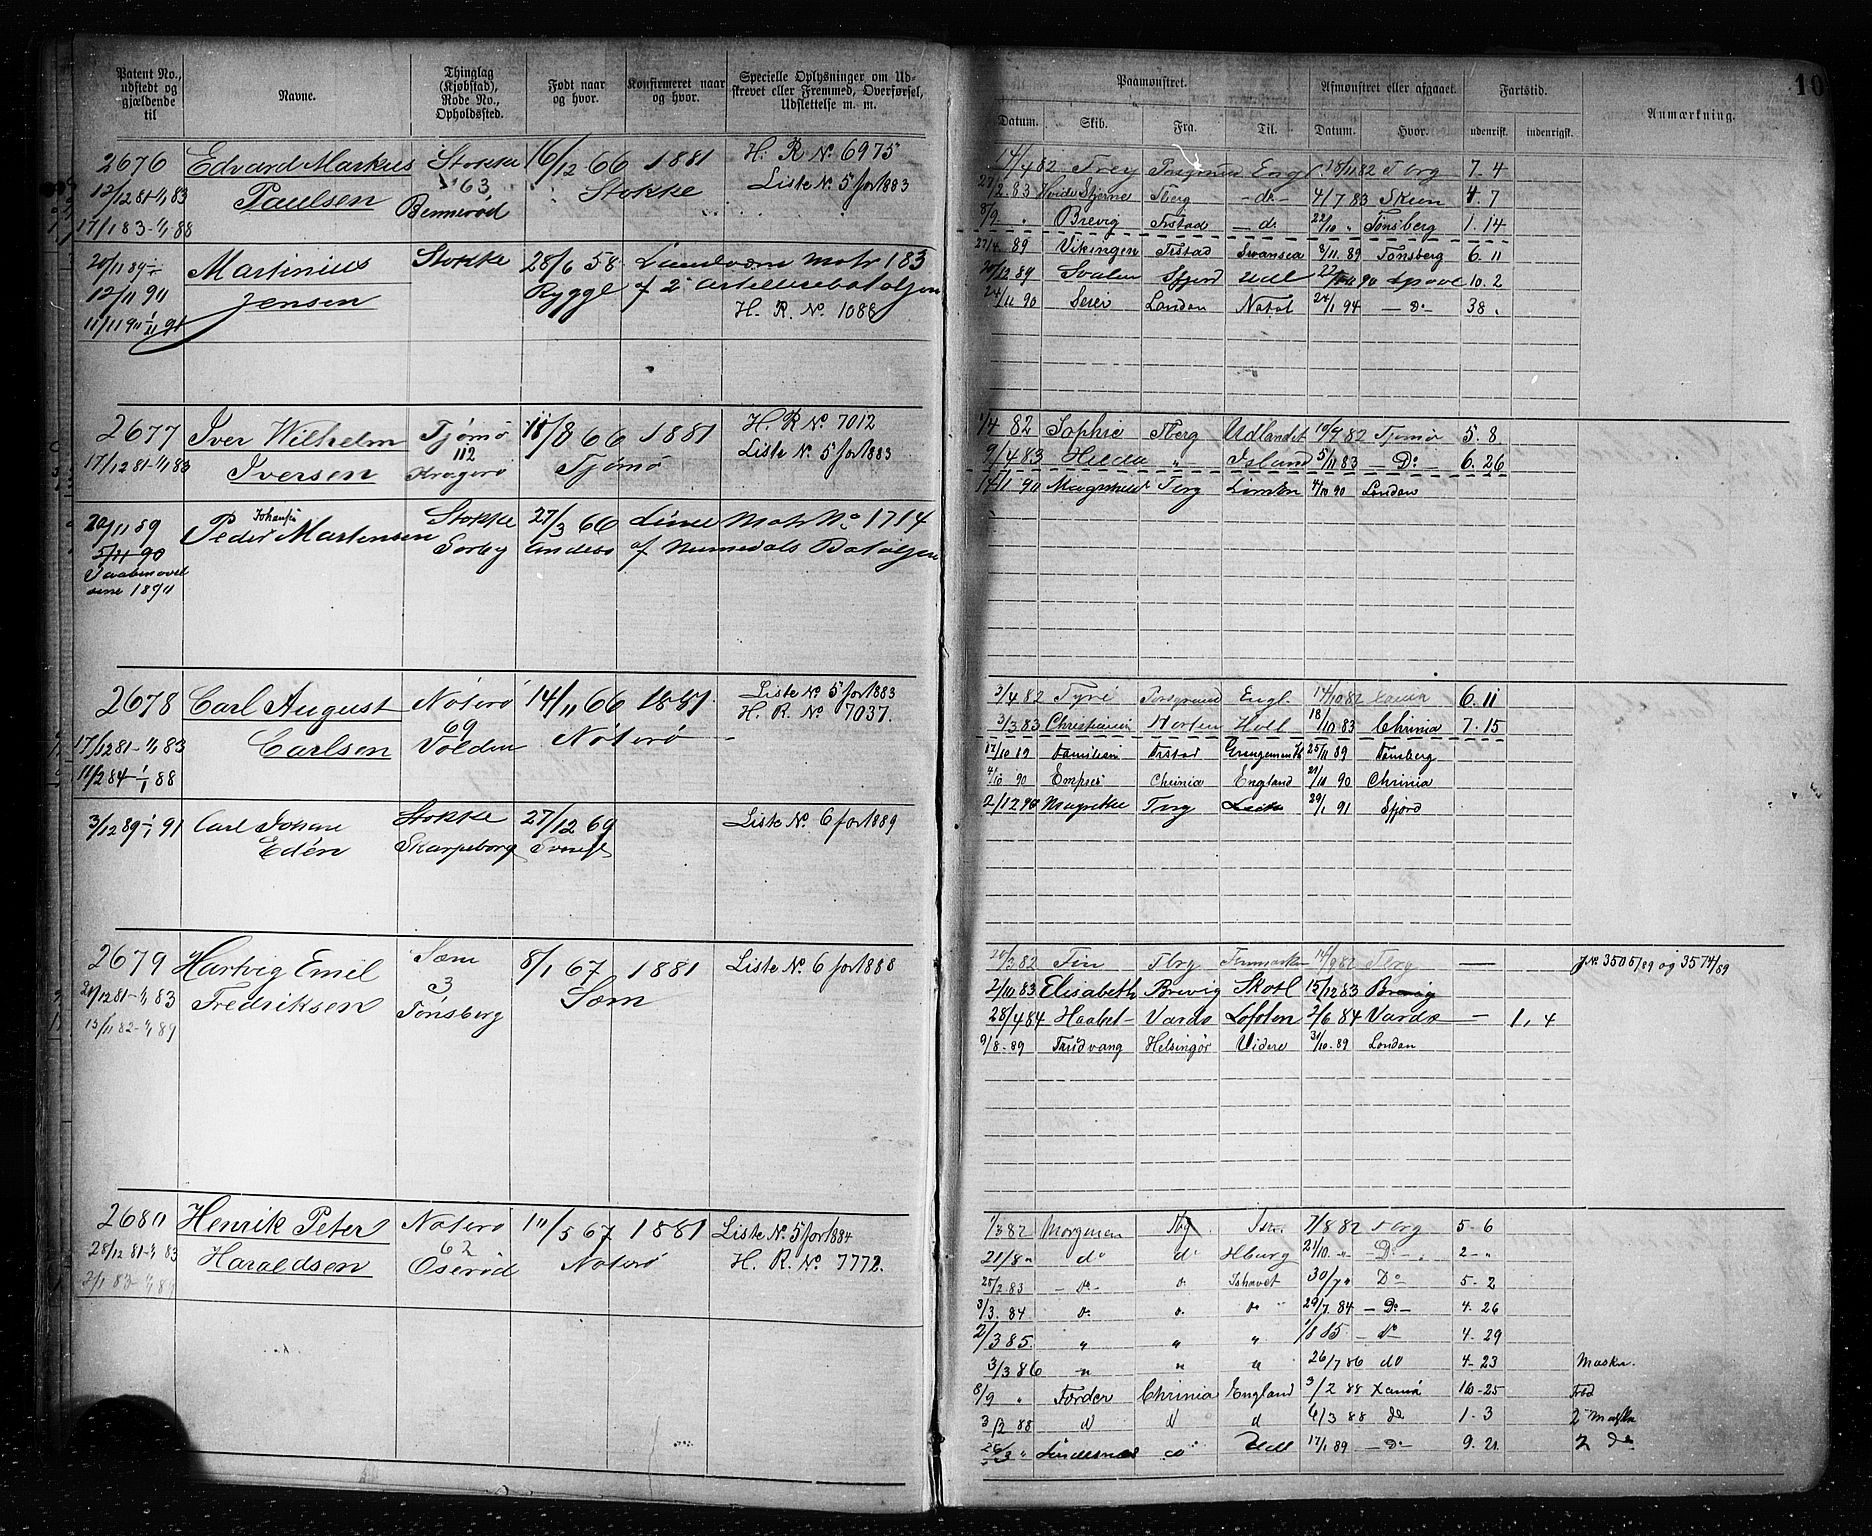 10
Patent No., udstedt og gjældende til | Navne. | Thinglag (Kjøbstad), Rode No., Opholdssted. | Født naar og hvor. | Konfirmeret naar og hvor. | Specielle Oplysninger om Udskrevet eller Fremmed, Overførsel, Udslettelse m. m. | Paamønstret. | Afmønstret eller afgaaet. | Fartstid. | Anmærkning.
Datum. | Skib. | Fra. | Til. | Datum. | Hvor. | udenrigst. | indenrigst.
2676 Edvard Markus Stokke 16/12 66 1881 H. R No 6975
12/12 81-1/1 83 Paulsen 63 Stokke Liste No 5 for 1883
17/1 83-1/1 88 Bennerød
14/4 82 Frey Porsgrund Engl. 15/11 82 Tbrg 7-4
27/2 83 Hvide Stjerne Tberg -do- 4/7 83 Skien 4. 7
8/9 " Brevig Frstad -do 22/10 " Tønsberg 1.14
20/11 89 Martinius Stokke 28/6 58 Landværn Matr 183
12/11 90 Jensen Rygge af 2 Artilleribataljon
11/11 90 H. R. No. 1086
27/4 89 Vikingen Frstad Swansea 3/11 89 Tønsberg 6. 11
20/12 89 Svalen Sfjord Udl 10. 2
24/11 90 Seier London Natal 24/1 94 -Do- 38.
2677 Iver Wilhelm Tjømø 11/8 66 1881 H. R No 7012
17/12 81-1/1 83 Iversen 112 Tjømø Liste No. 5 for 1883
Kragerø
1/4 82 Sophie Tberg Udlandet 10/9 82 Tjømø 5. 8
9/4 83 Hilda " Island 5/11 83 -Do- 6. 26
14/1 90 Magnhild Tbrg London 4/10 90 London
20/11 89 Peder Johansen Martensen Stokke 27/3 66 Linie Matr No 1714
5/11 90 Sørby Andebo af Numedals Bataljon
1890
2678 Carl August Nøterø 14/11 66 1881. Liste No 5 for 1883
17/12 81-1/1 83 Carlsen 69 Nøterø H. R. No 7037.
11/2 84-1/1 88 Volden
3/4 82 Tyri Porsgrund Engl. 14/10 82 6. 11
3/3 83 Christianin Horten Holl 18/10 83 Chrinia 7. 15
17/10 89 Familien Frstad 25/11 89 Tønsberg
4/10 90 Empres Chrinia England 21/11 90 Chrinia
2/12 90 Magnhilde Tbrg Leith 29/1 91 Sfjord
3/12 89-1/1 91 Carl Johan Stokke 27/12 69 Liste No. 6 for 1889
Edén Skarpeborg
2679 Hartvig Emil Sæm 8/1 67 1881 Liste No. 6 for 1888
21/12 81-1/1 83 Fredriksen 3 Sæm
15/11 82-1/1 89 Tønsberg
20/3 82 Fin Tbrg Finmarken 14/9 82 Tbrg — J. No 3505/89 og 3574/89
2/10 83 Elisabeth Brevig Skotl 15/12 83 Brevig
28/4 84 Haabet Vardø Lofoten 2/6 84 Vardø — 1, 4
9/8-89 Fridvang Helsingør Videre 31/10-89 London
2680 Henrik Peter Nøterø 10/5 67 1881 Liste No. 5 for 1884
28/12 81-1/1 83 Haraldsen 62 Nøterø H. R. No 7772.
2/1 83-1/1 89 Oserød
1/3 82 Morgenen Tbg Ish. 7/8 82 Tbrg 5- 6
21/8 " do do Hburg 21/10 " -Do- 2- "
25/2 83 -do- do Ishavet 30/7 " Do 5- 2
3/3. 84 do do do 29/7 84 -Do- 4- 26
2/3 85. " " " 1/8 85 do 4- 29
3/3 86 " " " 26/7 86 do 4- 23 Maskn.
8/9 " Færder Chrinia England 3/2 88 Xania 16-25 Fbd
3/2 88 d d d 6/3 88 do 1. 3 2 Maskn
26/3 " Lindesnæs do Udl 17/1 89 -Do- 9. 21 2 do